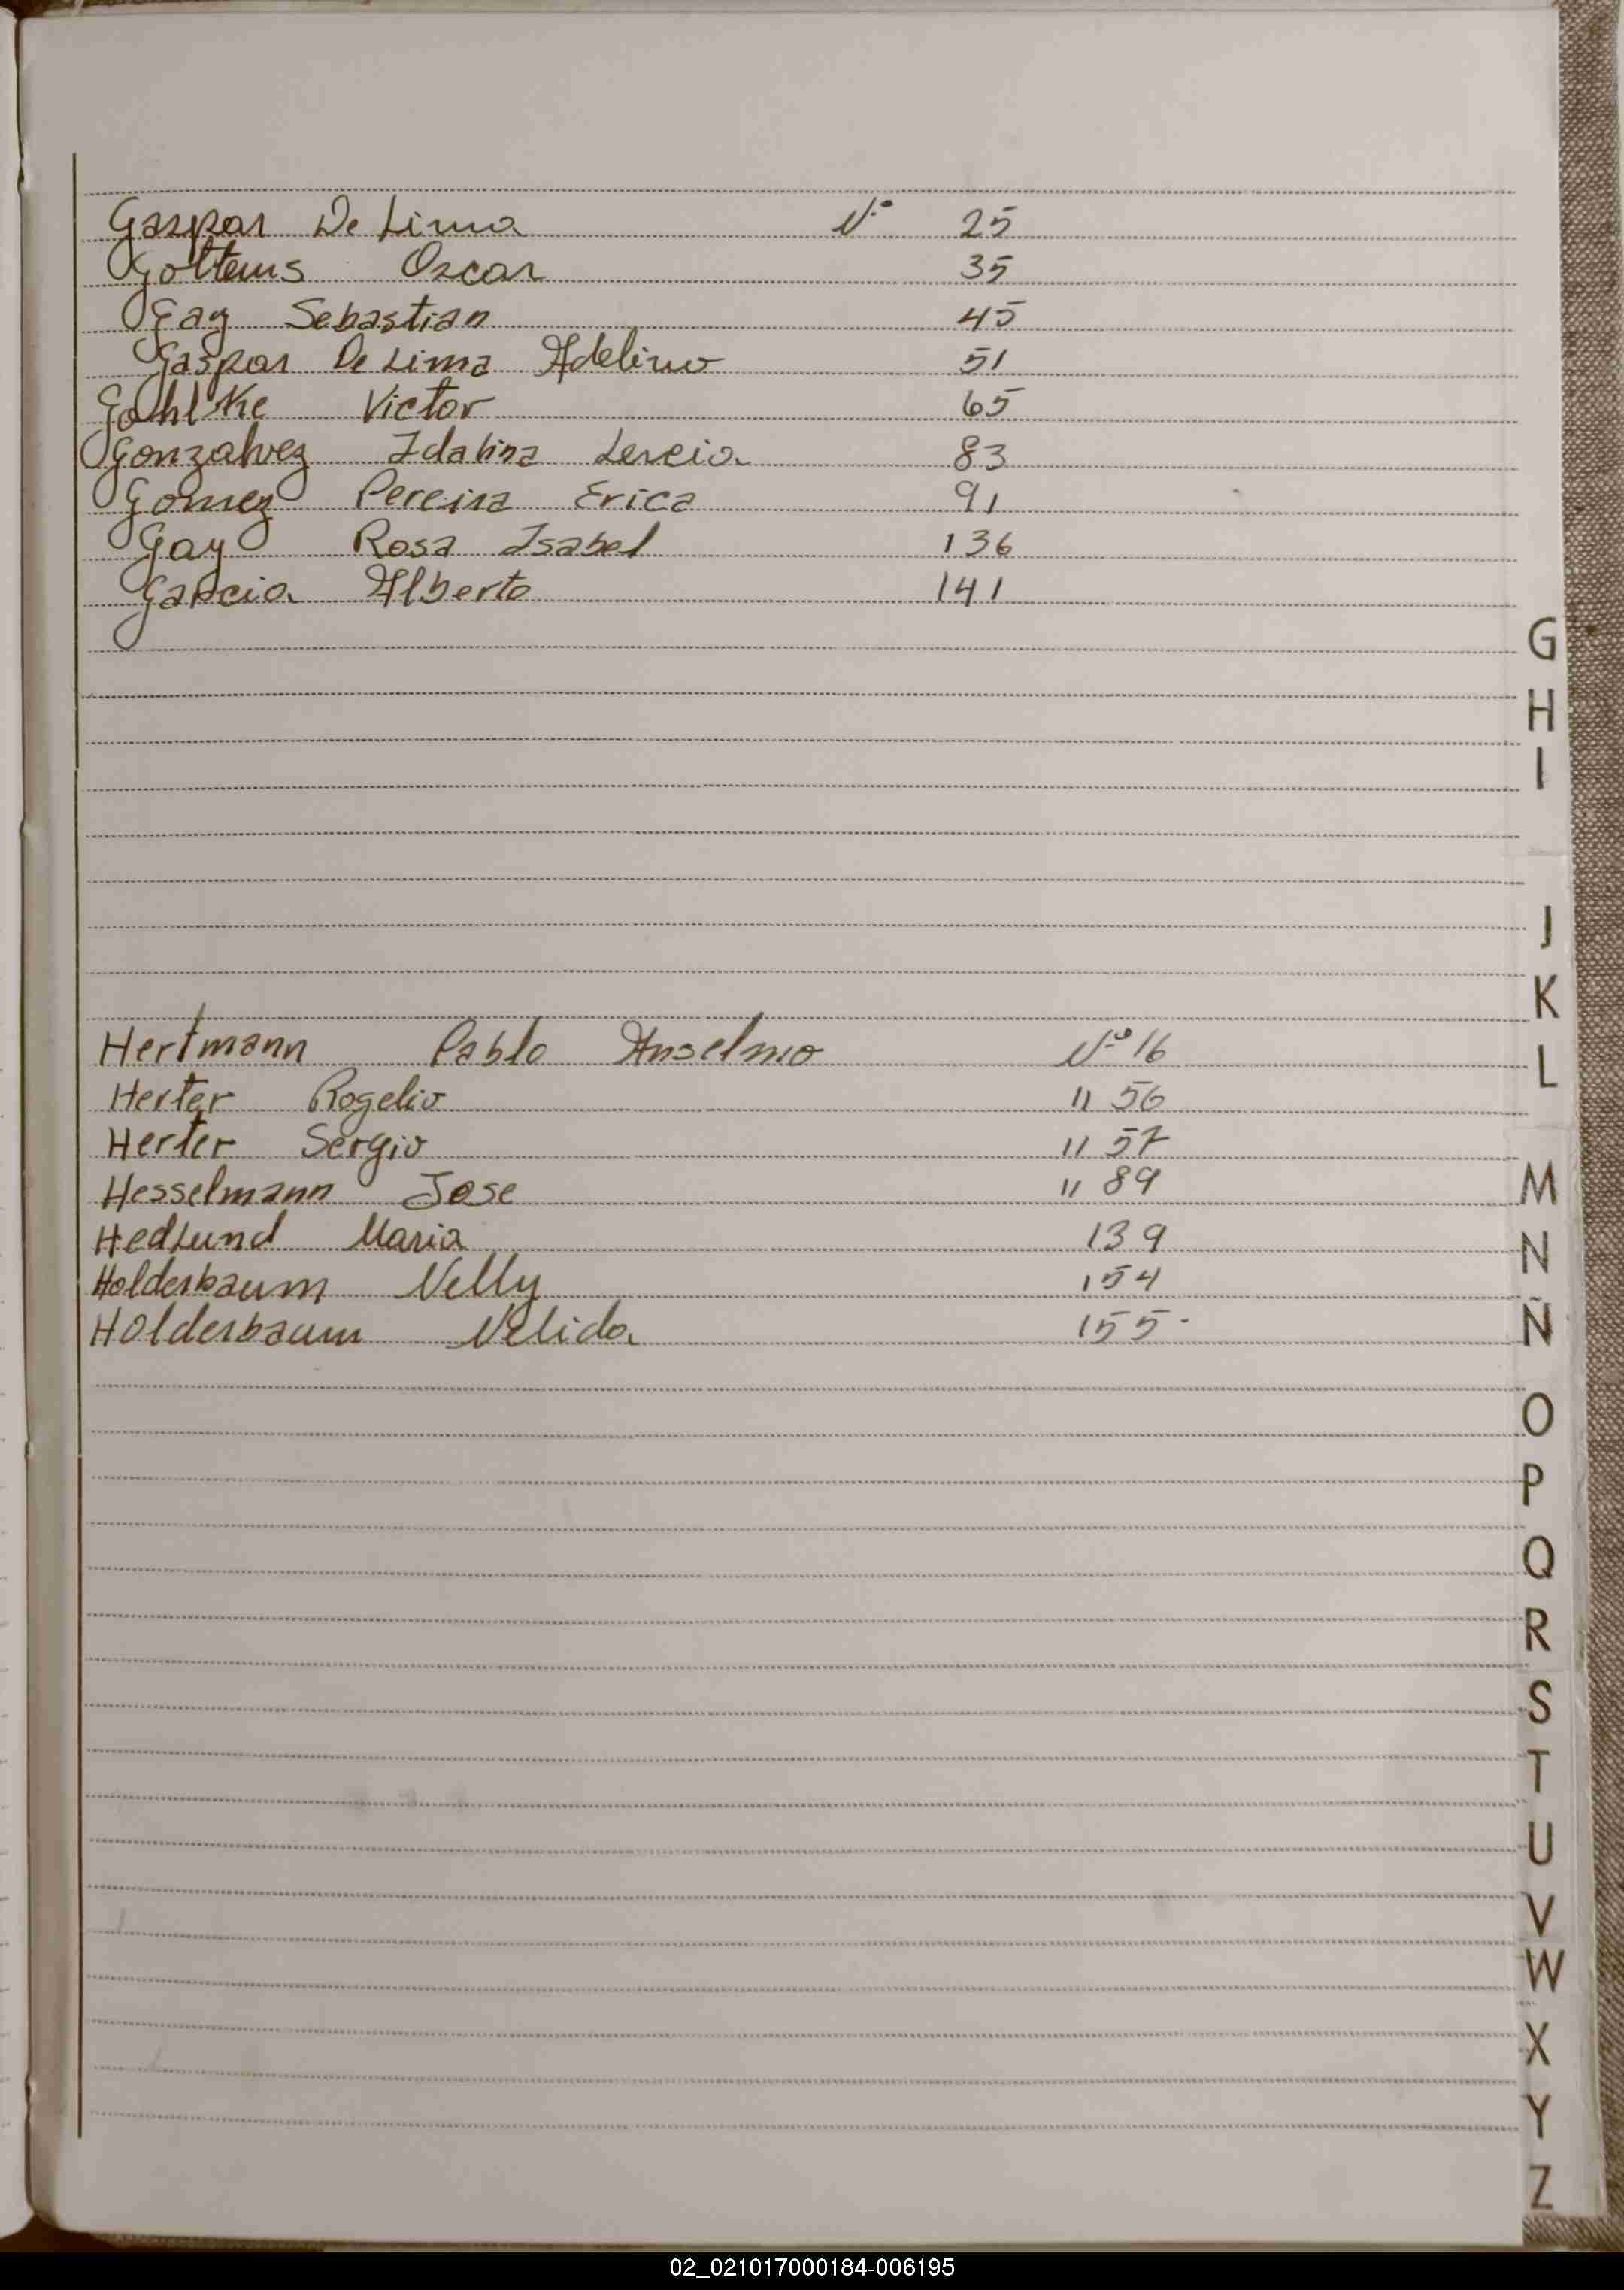 Gaspar De Lima N.° 25
Gottems Oscar 35
Gay Sebastian 45
Gaspar De Lima Adelino 51
Gohlke Victor 65
Gonzalvez Idalina Lercia 83
Gomez Pereira Erica 91
Gay Rosa Isabel 136
Garcia Alberto 141
G
H
I
J
K
L
Hertmann Pablo Anselmo N.° 16
Herter Rogelio " 56
Herter Sergio " 57
Hesselmann Jose " 89
Hedlund Maria 139
Holderbaum Nelly 154
Holderbaum Nelida 155-
M
N
Ñ
O
P
Q
R
S
T
U
V
W
X
Y
Z
02_021017000184-006195